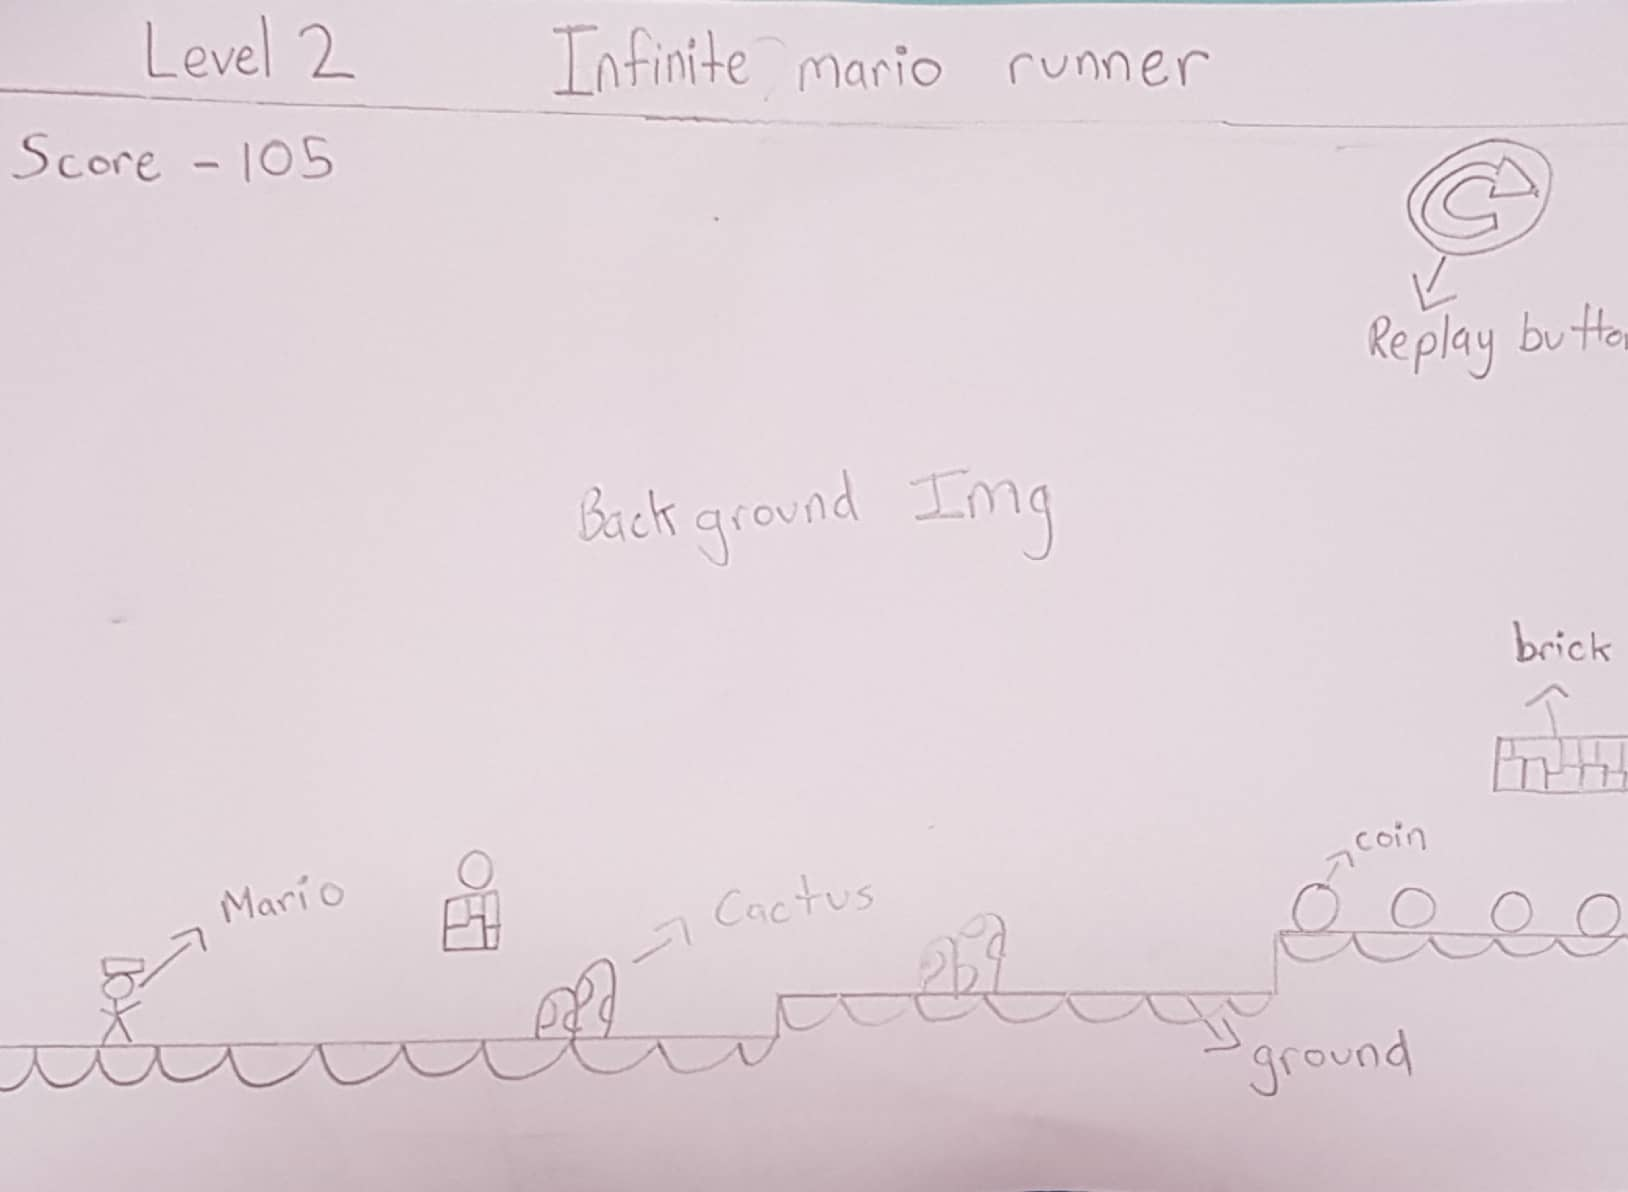 Level 2 Infinite mario runner
Score - 105
Replay button
Background Img
brick
coin
Mario
Cactus
ground